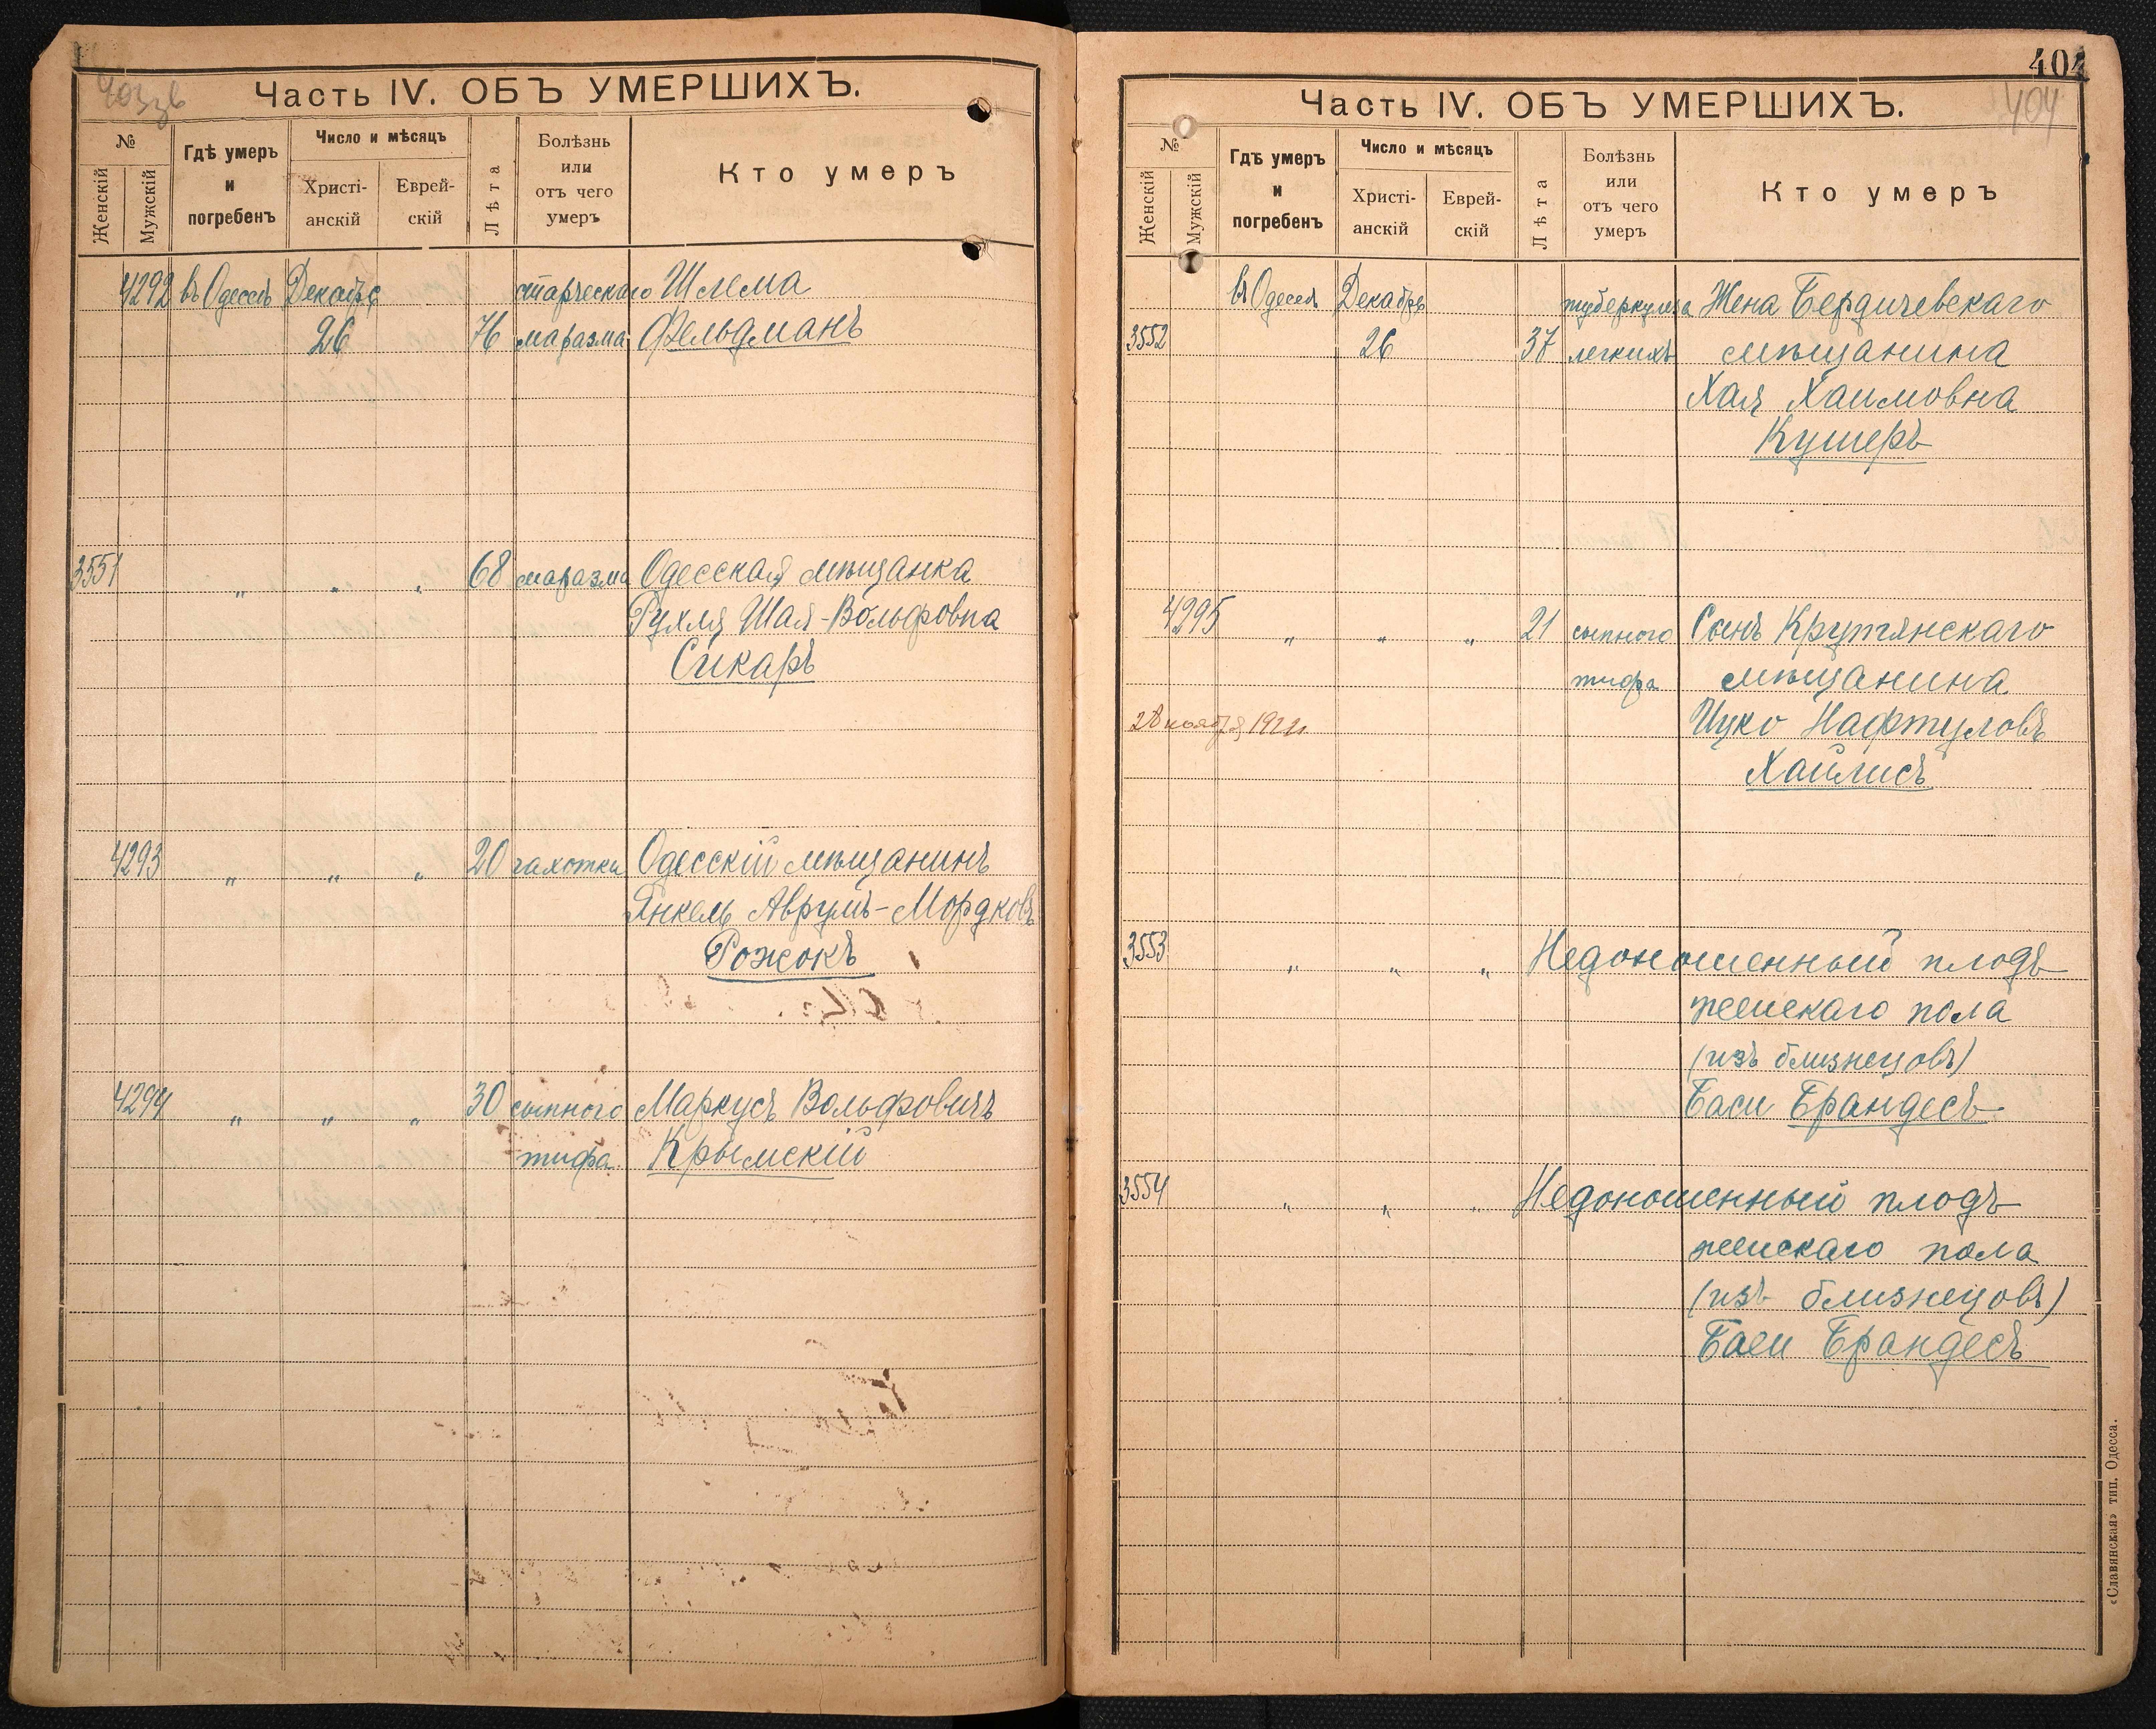 403 зв
Часть IV. ОБЪ УМЕРШИХЪ.
№
Женскій
Мужскій
Гдѣ умеръ и погребенъ
Число и мѣсяцъ
Христі-анскій
Еврей-скій
Лѣта
Болѣзнь или отъ чего умеръ
Кто умеръ
4292 въ Одессѣ Декабрь старческаго Шлема
26 76 маразма Фельдманъ
3551 „ „ „ 68 маразма Одесская мѣщанка
Рухля Шая-Вольфовна
Сикаръ
4293 „ „ „ 20 чахотки Одесскій мѣщанинъ
Янкель Аврумъ-Мордковъ
Рожокъ
4294 „ „ „ 30 сыпного Маркусъ Вольфовичъ
тифа Крымскій
404
404
Часть IV. ОБЪ УМЕРШИХЪ.
№
Женскій
Мужскій
Гдѣ умеръ и погребенъ
Число и мѣсяцъ
Христі-анскій
Еврей-скій
Лѣта
Болѣзнь или отъ чего умеръ
Кто умеръ
въ Одессѣ Декабрь туберкулеза Жена Бердичевскаго
3552 26 37 легкихъ мѣщанина
Хая Хаимовна
Кушеръ
4295 „ „ „ 21 сыпного Сынъ Крутянскаго
тифа мѣщанина
28 ноября 192 Ицко Нафтуловъ
Хайлисъ
3553 „ „ „ Недоношенный плодъ
женскаго пола
(изъ близнецовъ)
Баси Брандесъ
3554 „ „ „ Недоношенный плодъ
женскаго пола
(изъ близнецовъ)
Баси Брандесъ
«Славянская» тип. Одесса.